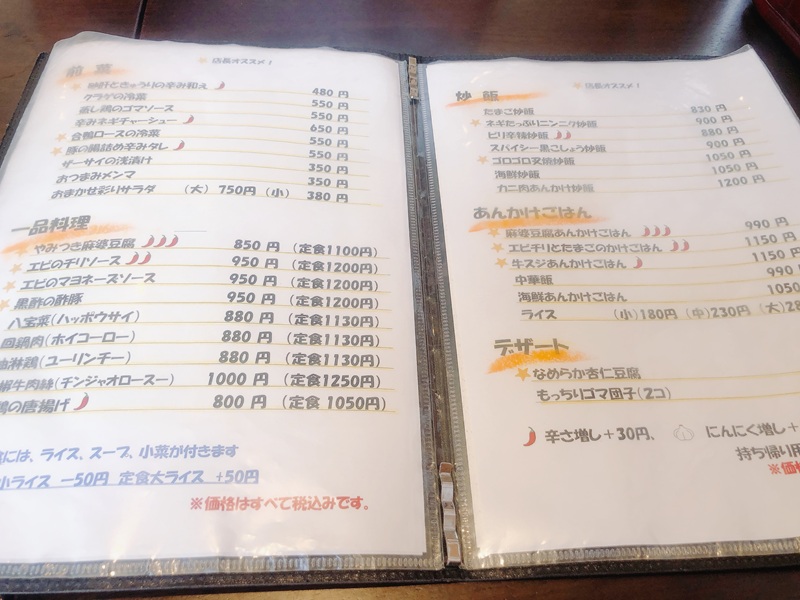 前菜
店長オススメ!
砂肝ときゅうりの辛み和え 480 円
クラゲの冷菜 550 円
蒸し鶏のゴマソース 550 円
辛みネギチャーシュー 550 円
合鴨ロースの冷菜 650 円
豚の腸詰め辛みタレ 550 円
ザーサイの浅漬け 350 円
おつまみメンマ 350 円
おまかせ彩りサラダ (大) 750円 (小) 380 円
一品料理
やみつき麻婆豆腐 850 円 (定食1100円)
エビのチリソース 950 円 (定食1200円)
エビのマヨネーズソース 950 円 (定食1200円)
黒酢の酢豚 950 円 (定食1200円)
八宝菜(ハッポウサイ) 880 円 (定食1130円)
回鍋肉(ホイコーロー) 880 円 (定食1130円)
油淋鶏(ユーリンチー) 880 円 (定食1130円)
椒牛肉絲(チンジャオロースー) 1000 円 (定食1250円)
鶏の唐揚げ 800 円 (定食 1050円)
には、ライス、スープ、小菜が付きます
小ライス −50円 定食大ライス +50円
※価格はすべて税込みです。
店長オススメ!
炒飯
たまご炒飯 830 円
ネギたっぷりニンニク炒飯 900 円
ピリ辛辣炒飯 880 円
スパイシー黒こしょう炒飯 900 円
ゴロゴロ叉焼炒飯 1050 円
海鮮炒飯 1050 円
カニ肉あんかけ炒飯 1200 円
あんかけごはん
麻婆豆腐あんかけごはん 990 円
エビチリとたまごのかけごはん 1150 円
牛スジあんかけごはん 1150
中華飯 990
海鮮あんかけごはん 1050
ライス (小)180円 (中)230円 (大)28
デザート
なめらか杏仁豆腐
もっちりゴマ団子(2コ)
辛さ増し+30円、 にんにく増し+
持ち帰り用
※価